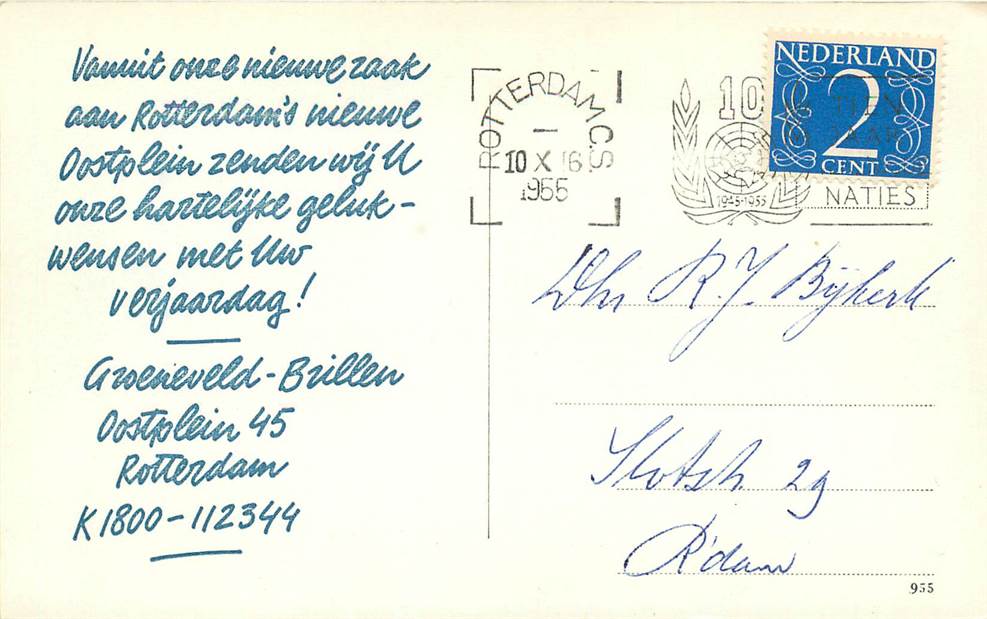 Vanuit onze nieuwe zaak
aan Rotterdam's nieuwe
Oostplein zenden wij U
onze hartelijke geluk-
wensen met Uw
verjaardag!
Groeneveld-Brillen
Oostplein 45
Rotterdam
K1800-112344
ROTTERDAM C.S.
10 X 16
1955
10
TIEN
JAAR
1945-1955
NATIES
NEDERLAND
2
CENT
Dhr R. J. Bijkerk
R'dam
955